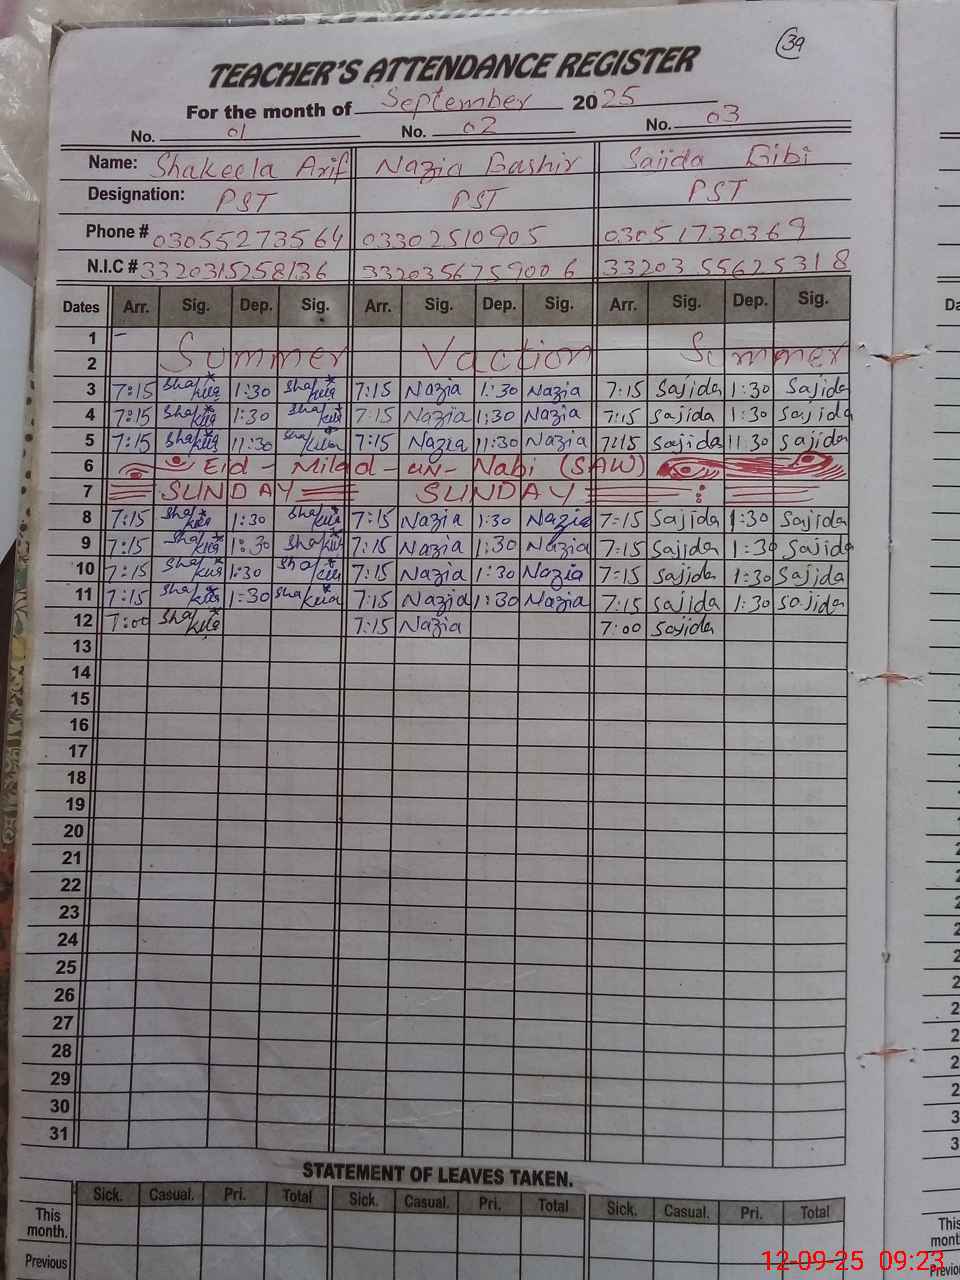 39
TEACHER'S ATTENDANCE REGISTER
For the month of September 2025
No. 01 No. 02 No. 03
Name: Shakeela Arif Nazia Bashir Sajida Bibi
Designation: PST PST PST
Phone # 03055273564 03302510905 03051730369
N.I.C # 3320315258136 3320356759006 3320355625318
Dates Arr. Sig. Dep. Sig. Arr. Sig. Dep. Sig. Arr. Sig. Dep. Sig.
1
2 Summer Vaction Summer
3 7:15 1:30 7:15 Nazia 1:30 Nazia 7:15 Sajida 1:30 Sajida
4 7:15 1:30 7:15 Nazia 1:30 Nazia 7:15 Sajida 1:30 Sajida
5 7:15 11:30 7:15 Nazia 11:30 Nazia 7:15 Sajida 11:30 Sajida
6 Eid - Milad - un - Nabi (SAW)
7 SUNDAY SUNDAY
8 7:15 1:30 7:15 Nazia 1:30 Nazia 7:15 Sajida 1:30 Sajida
9 7:15 1:30 7:15 Nazia 1:30 Nazia 7:15 Sajida 1:30 Sajida
10 7:15 1:30 7:15 Nazia 1:30 Nazia 7:15 Sajida 1:30 Sajida
11 7:15 1:30 7:15 Nazia 1:30 Nazia 7:15 Sajida 1:30 Sajida
12 7:00 7:15 Nazia 7:00 Sajida
13
14
15
16
17
18
19
20
21
22
23
24
25
26
27
28
29
30
31
STATEMENT OF LEAVES TAKEN.
Sick. Casual. Pri. Total Sick. Casual. Pri. Total Sick. Casual. Pri. Total
This month.
Previous
12-09-25 09:23